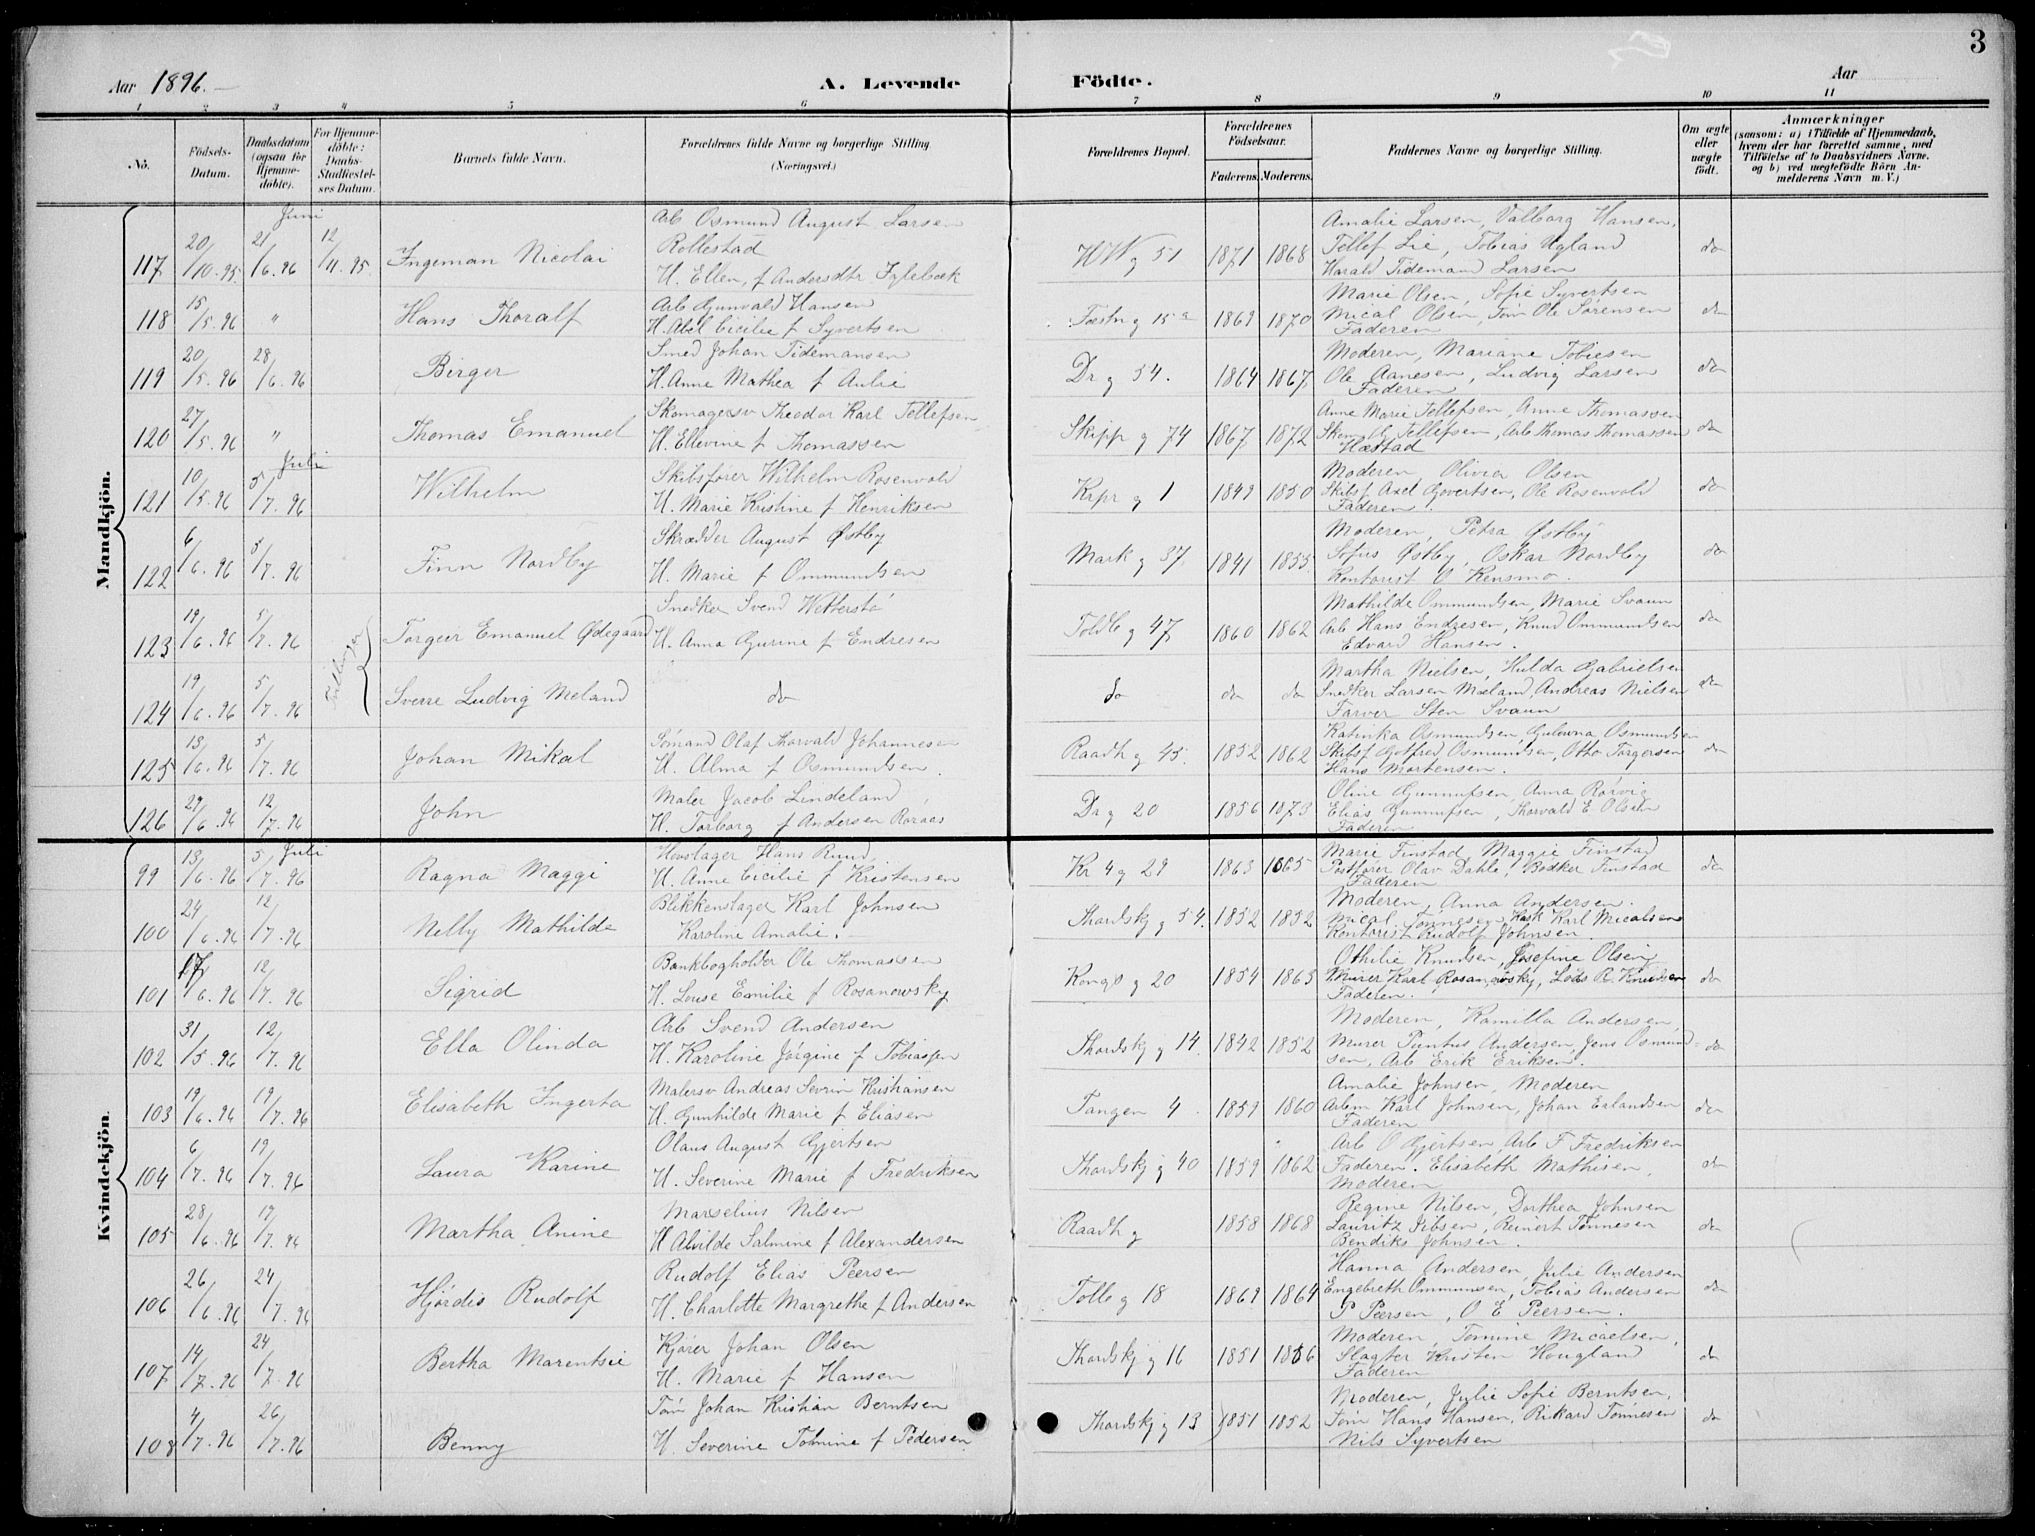 3
Aar 1896.
A. Levende Födte.
Aar
1 2 3 4 5 6 7 8 9 10 11
No.
Födsels-Datum.
Daabsdatum (ogsaa for Hjemme-döbte).
For Hjemme-döbte: Daabs-Stadfæstel-ses Datum.
Barnets fulde Navn.
Forældrenes fulde Navne og borgerlige Stilling (Næringsvei.)
Forældrenes Bopæl.
Forældrenes Födselsaar.
Faderens. Moderens.
Faddernes Navne og borgerlige Stilling.
Om ægte eller uægte födt.
Anmærkninger
(saasom: a) i Tilfælde af Hjemmedaab, hvem der har forrettet samme, med Tilföielse af to Daabsvidners Navne. og b) ved uægtefödte Börn An-melderens Navn m. V.)
Mandkjön.
Juni
Arb Osmund August Larsen
Amalie Larsen, Valborg Hansen,
117 20/10.95 21/6.96 12/11.95 Ingeman Nicolai Rollestad
H. Ellen, f Andersdtr
1871 1868 Tellef Lie, Tobias Ugland do
Harald Tidemand Larsen
118 15/5.96 " Hans Thoralf Arb Gunvald Hansen
H. Abel Cicilie f Syvertsen
Fæstn g 15 a 1869 1870 Marie Olsen, Sofie Syvertsen
Mical Olsen, Tøm Ole Sørensen do
Faderen
119 20/5.96 28/6.96 Birger Smed Johan Tidemansen
H. Anne Mathea f Aulie
Dr g 54. 1864 1867 Moderen, Mariane Tobiesen
Ole Aanesen, Ludvig Larsen do
Faderen
120 27/5.96 " Thomas Emanuel Skomagersv Theodor Karl Tellefsen
H. Ellevine f Thomassen
Skipp g 74 1867 1872 Anne Marie Tellefsen, Anne Thomassen
Tellefsen, Arb Thomas Thomassen do
Juli
121 10/5.96 5/7.96 Wilhelm Skibsfører Wilhelm Rosenvold
H. Marie Kristine f Henriksen
Krpr g 1 1849 1850 Moderen, Olivia Olsen
Skibsf Axel Govertsen, Ole Rosenvold do
Faderen.
122 6/6.96 5/7.96 Finn Nordby Skrædder August Østby
H. Marie f Ommundsen
Mark g 37 1841 1855 Moderen, Petra Østby
Sofus Østby, Oskar Nordby do
Kontorist O Kensmo.
Tvillinger
123 19/6.96 5/7.96 Torgeir Emanuel Ødegaard Snedker Svend Wetterstø
H. Anna Gurine f Endresen
Toldb g 47 1860 1862 Mathilde Ommundsen, Marie Svaun
Arb Hans Endresen, Knud Ommundsen do
Edvard Hansen.
124 19/6.96 5/7.96 Sverre Ludvig Meland do
do do do Martha Nielsen, Hulda Gabrielsen
Snedker Larsen Mæland, Andreas Nielsen do
Farver Sten Svaun
125 13/6.96 5/7.96 Johan Mikal Sømand Olaf Thorvald Johannesen
H. Alma f Osmundsen.
Raadh g 45. 1852 1862 Katinka Osmundsen, Gulowna Osmundsen
Skibsf Gotfred Osmundsen, Otto Torgersen do
Hans Mortensen.
126 29/6.96 12/7.96 John Maler Jacob Lindeland,
H. Torborg f Andersen
Dr g 20 1856 1873 Oline Gunnufsen, Anna Rørvig
Elias Gunnufsen, Thorvald E. Olsen
Faderen
Kvindekjön.
Juli
99 13/6.96 5/7.96 Ragna Maggi Hovslager Hans Ruud
H. Anne Cicilie f Kristensen
Kr 4 g 29 1863 1865 Marie Finstad, Maggie Finstad
Postfører Olav Dahle, Bødker Finstad do
Faderen
100 24/6.96 12/7.96 Nelly Mathilde Blikkenslager Karl Johnsen
Karoline Amalie.
Thordskj g 54. 1852 1852 Moderen, Anna Andersen.
Mical Tønnesen, Karl Micalsen
Kontorist Rudolf Johnsen
101 17/6.96 12/7.96 Sigrid Bankbogholder Ole Thomassen
H. Louse Emilie f Rosanowsky
Kongs g 20 1854 1863 Othilie Knudsen, Josefine Olsen,
Murer Karl Rosanowsky, Lods R Knudsen do
Faderen.
102 31/5.96 12/7.96 Ella Olinda Arb Svend Andersen
H. Karoline Jørgine f Tobiassen
Thordskj g 14. 1842 1852 Moderen, Kamilla Andersen,
Murer Pontus Andersen, Jens Osmund- do
sen, Arb Erik Eriksen.
103 19/6.96 19/7.96 Elisabeth Ingerta Malersv Andreas Sevrin Kristiansen
H. Gunhilde Marie f Eliasen
Tangen 4. 1859 1860 Amalie Johnsen, Moderen
Arbm Karl Johnsen, Johan Erlandsen do
Faderen
104 6/7.96 19/7.96 Laura Karine Olaus August Gjertsen
H. Severine Marie f Fredriksen
Thordskj g 40 1859 1862 Arb O Gjertsen, Arb F Fredriksen
Faderen. Elisabeth Mathisen, do
Moderen
105 28/6.96 19/7.96 Martha Anine Marselius Nilsen
H Alvilde Salmine f Alexandersen
Raadh g 1858 1868 Regine Nilsen, Dorthea Johnsen
Lauritz Jibsen, Reinert Tønnesen do
Bendiks Johnsen.
106 26/6.96 24/7.96 Hjørdis Rudolf Rudolf Elias Peersen
H. Charlotte Margrethe f Andersen
Tolb g 18 1869 1864 Hanna Andersen, Julie Andersen
Engebreth Ommundsen, Tobias Andersen do
P Peersen, O E Peersen.
107 14/7.96 24/7.96 Bertha Marentsie Kjører Johan Olsen
H. Marie f Hansen
Thordskj g 16 1851 1856 Moderen, Tomine Micaelsen,
Slagter Kristen Hougland do
Faderen
108 4/7.96 26/7.96 Benny Tøm Johan Kristian Berntsen
H. Severine Tomine f Pedersen
Thordskj g 13 1851 1852 Moderen, Julie Sofie Berntsen,
Tøm Hans Hansen, Rikard Tønnesen do
Nils Syvertsen